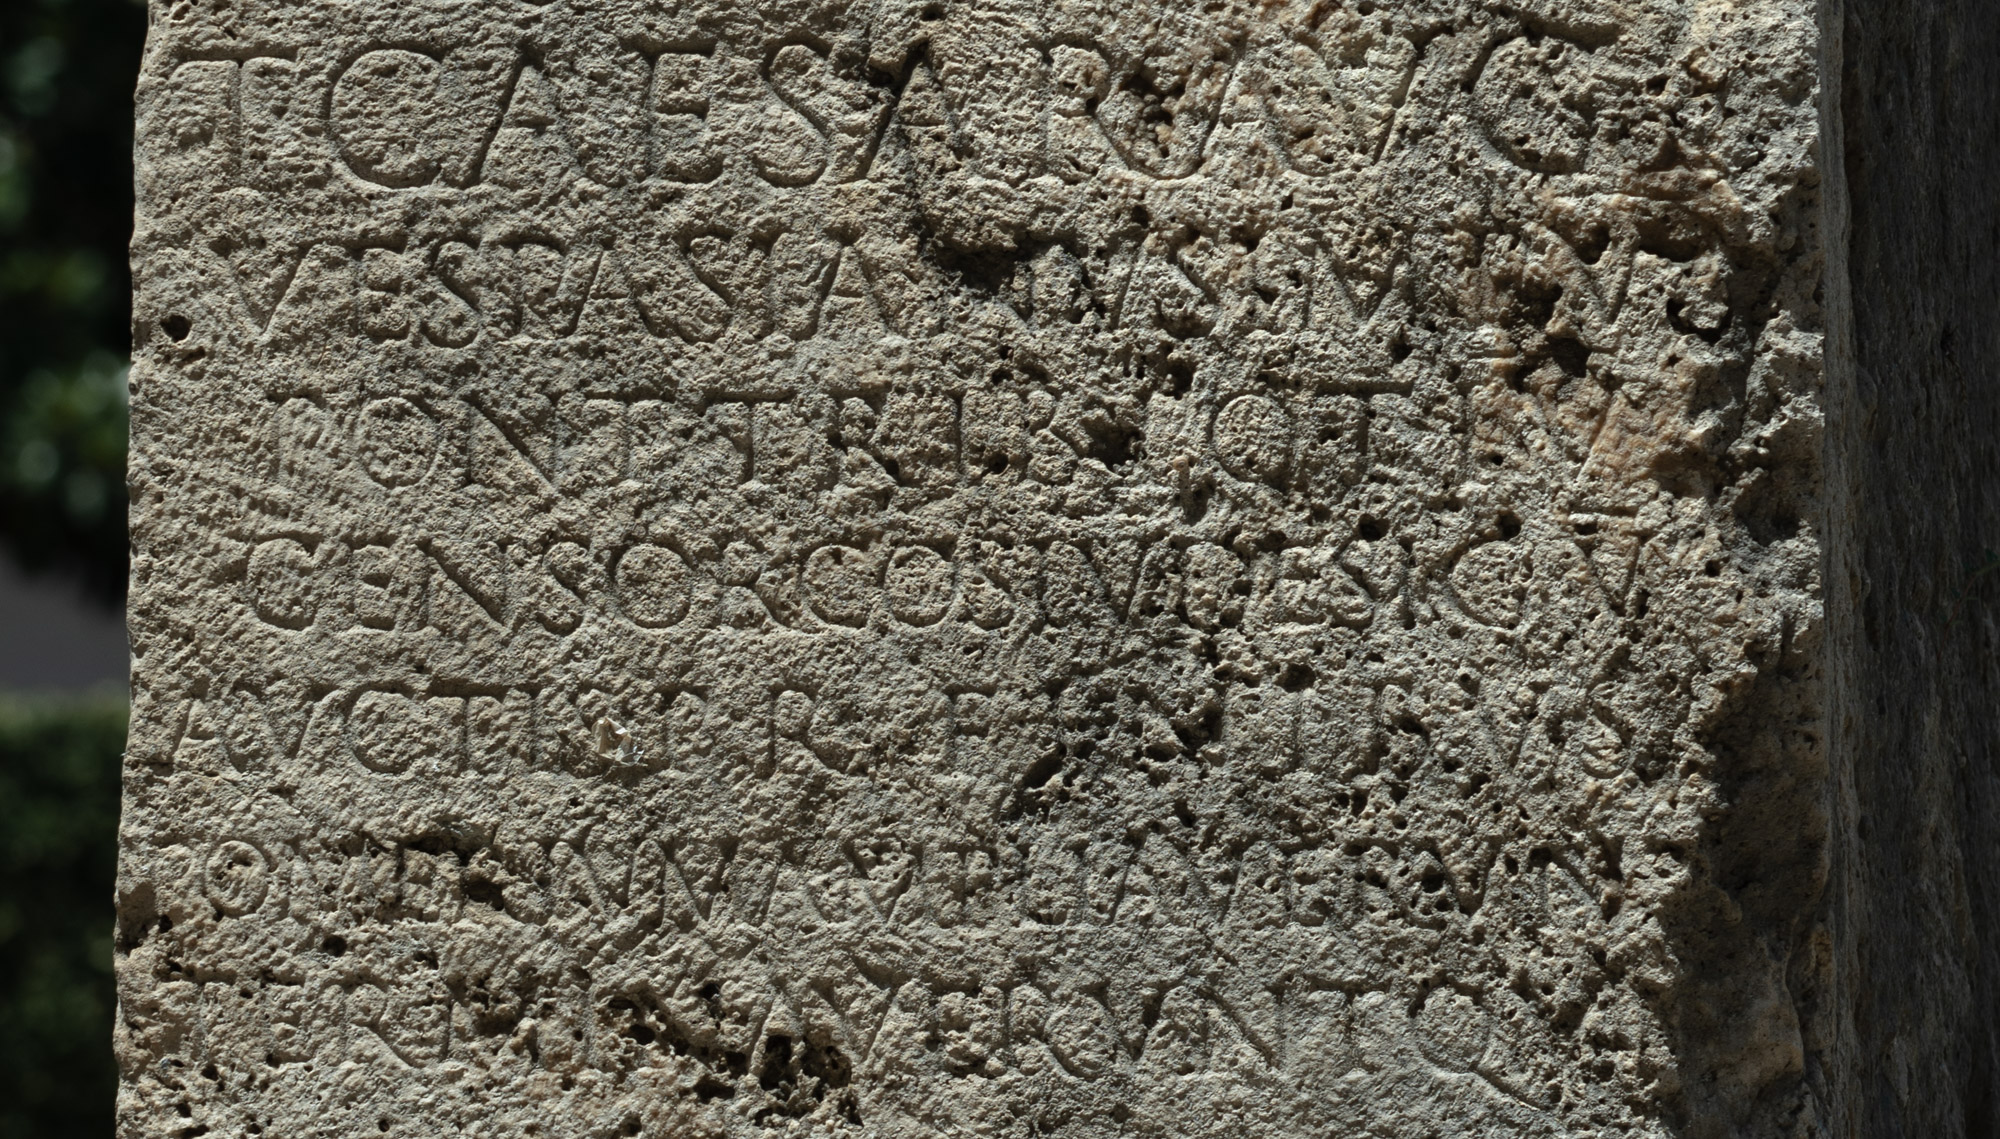 T CAESAR AVG
VESPASIANVS IMP VI
PONT TRIB POT IV
CENSOR COS IV DESIG V
AVCTIS P R FINIBVS
POMERIVM AMPLIAVERVNT
TERMINAVERVNTQ